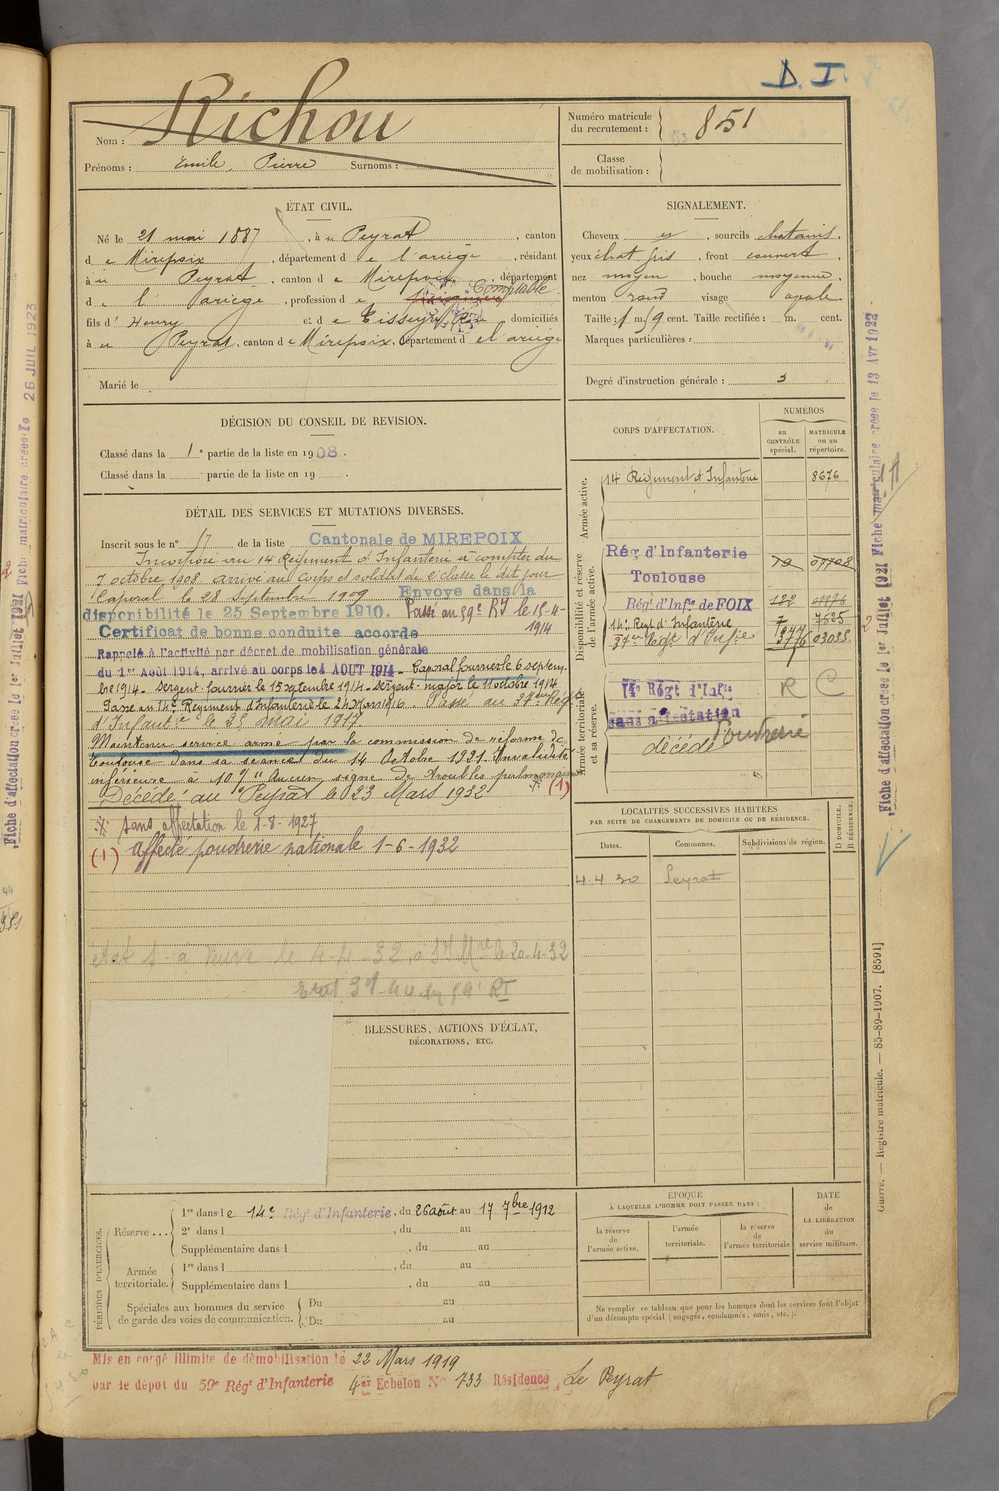 D. I.
Nom : Richou
Prénoms : Emile, Pierre Surnoms :
Numéro matricule du recrutement : 851
Classe de mobilisation :
ÉTAT CIVIL.
Né le 21 mai 1887, à u Peyrat, canton
d e Mirepoix, département d e l'ariège, résidant
à u Peyrat, canton d e Mirepoix, département
d e l'ariège, profession d e Comptable
fils d' Henry et d e Tisseyre domiciliés
à u Peyrat, canton d e Mirepoix, département d e l'ariège
Marié le
SIGNALEMENT.
Cheveux et, sourcils chatains,
yeux chat gris, front couvert,
nez moyen, bouche moyenne,
menton rond visage ovale
Taille : 1 m. 59 cent. Taille rectifiée : m. cent.
Marques particulières :
Degré d'instruction générale : 3
DÉCISION DU CONSEIL DE REVISION.
Classé dans la 1e partie de la liste en 1908.
Classé dans la partie de la liste en 19 .
DÉTAIL DES SERVICES ET MUTATIONS DIVERSES.
Inscrit sous le n° 17 de la liste Cantonale de MIREPOIX
Incorporé au 14 Régiment d'Infanterie à compter du
7 octobre 1908 arrivé au corps et soldat de 2e classe le dit jour
Caporal le 28 Septembre 1909 Envoyé dans la
disponibilité le 25 Septembre 1910. Passé au 59e RI le 15-4-
1914
Certificat de bonne conduite accordé
Rappelé à l'activité par décret de mobilisation générale
du 1er Août 1914, arrivé au corps le 4 AOUT 1914 - Caporal fourrier le 6 septem-
bre 1914 - Sergent-fourrier le 15 septembre 1914 - Sergent-major le 11 octobre 1914
Passé au 14e Régiment d'Infanterie le 24 Mars 1916. Passé au 37eme Régt
d'Infantie le 25 mai 1917
Maintenu service armé par la commission de réforme de
Toulouse dans sa séance du 14 Octobre 1921. Invalidité
inférieure à 10% "Aucun signe de troubles pulmonaires"
(1)
Décédé au Peyrat le 23 Mars 1932
Sans affectation le 1-8-1927
(1) affecté poudrerie nationale 1-6-1932
BLESSURES, ACTIONS D'ÉCLAT,
DÉCORATIONS, ETC.
CORPS D'AFFECTATION.
NUMÉROS
au CONTRÔLE spécial.
MATRICULE ou au répertoire.
Armée active.
14 Régiment d'Infanterie 8676
Disponibilité et réserve de l'armée active.
Rég. d'Infanterie
Toulouse
Régt d'Infie de FOIX
14e Regt d'Infanterie
37eme Regt d'Infie
Armée territoriale et sa réserve.
Régt d'Infie R C
sans affectation
Poudrerie
décédé
LOCALITÉS SUCCESSIVES HABITÉES
PAR SUITE DE CHANGEMENTS DE DOMICILE OU DE RÉSIDENCE.
Dates. Communes. Subdivisions de région. D DOMICILE. R RÉSIDENCE.
4.4.30 Peyrat
PÉRIODES D'EXERCICES.
Réserve ... 1re dans l e 14e Régt d'Infanterie, du 26 août au 17 7bre 1912
2e dans l , du au
Supplémentaire dans l , du au
Armée territoriale. 1re dans l , du au
Supplémentaire dans l , du au
Spéciales aux hommes du service de garde des voies de communication. Du au
Du au
ÉPOQUE
À LAQUELLE L'HOMME DOIT PASSER DANS :
la réserve de l'armée active.
l'armée territoriale.
la réserve de l'armée territoriale
DATE de LA LIBÉRATION du service militaire.
Ne remplir ce tableau que pour les hommes dont les services font l'objet
d'un décompte spécial (engagés, condamnés, omis, etc.).
Mis en congé illimité de démobilisation le 22 Mars 1919
par le dépôt du 59e Régt d'Infanterie 4er Echelon No 733 Résidence Le Peyrat
Fiche d'affectation créée le 1er Juillet 1921 Fiche matriculaire créée le 13 Avr 1922
Guerre. — Registre matricule. — 85-89-1907. [8591]
Fiche d'affectation créée le 1er Juillet 1921 Fiche matriculaire créée le 26 JUIL 1923